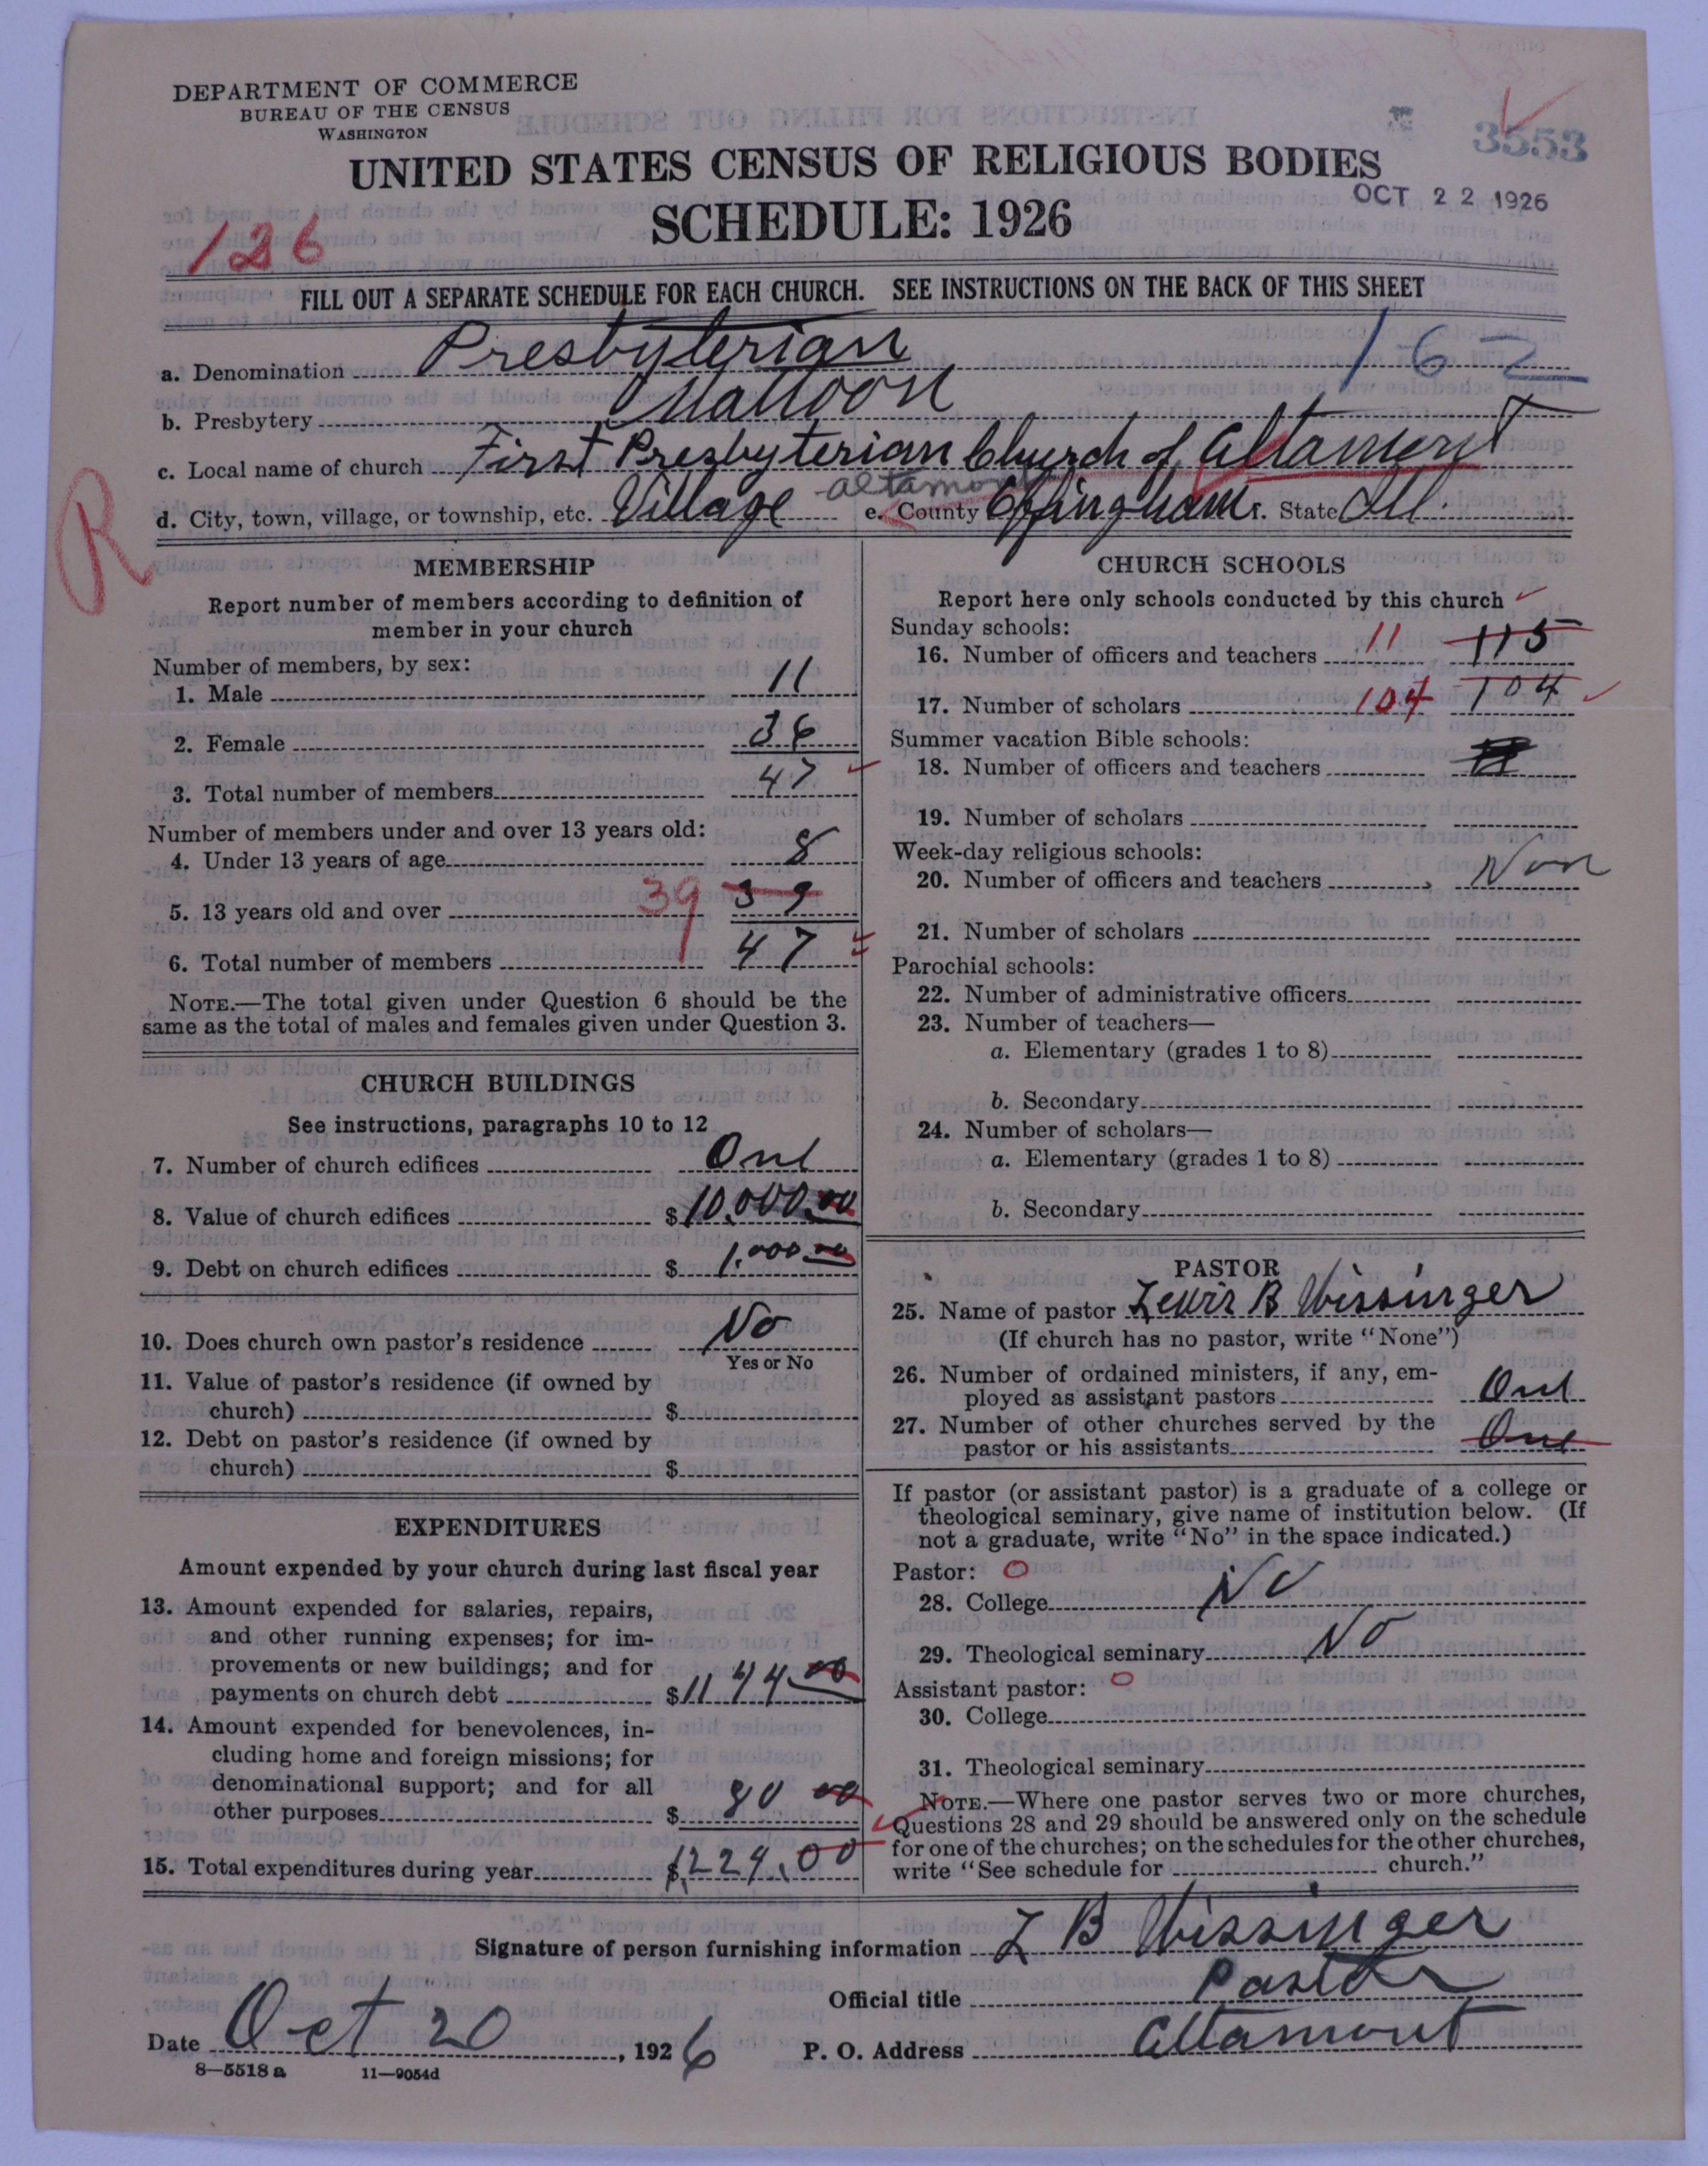 DEPARTMENT OF COMMERCE
BUREAU OF THE CENSUS
WASHINGTON
3553
UNITED STATES CENSUS OF RELIGIOUS BODIES
OCT 22 1926
SCHEDULE: 1926
126
FILL OUT A SEPARATE SCHEDULE FOR EACH CHURCH. SEE INSTRUCTIONS ON THE BACK OF THIS SHEET
a. Denomination Presbyterian 162
b. Presbytery Mattoon
c. Local name of church First Presbyterian Church of Altamont
d. City, town, village, or township, etc. Village Altamont e. County Effingham f. State Ill.
R
MEMBERSHIP
Report number of members according to definition of
member in your church
Number of members, by sex:
1. Male 11
2. Female 36
3. Total number of members 47
Number of members under and over 13 years old:
4. Under 13 years of age 8
5. 13 years old and over 39 39
6. Total number of members 47
NOTE.—The total given under Question 6 should be the
same as the total of males and females given under Question 3.
CHURCH BUILDINGS
See instructions, paragraphs 10 to 12
7. Number of church edifices One
8. Value of church edifices $10,000.00
9. Debt on church edifices $1.000 00
10. Does church own pastor's residence No
Yes or No
11. Value of pastor's residence (if owned by
church) $
12. Debt on pastor's residence (if owned by
church) $
EXPENDITURES
Amount expended by your church during last fiscal year
13. Amount expended for salaries, repairs,
and other running expenses; for im-
provements or new buildings; and for
payments on church debt $1144 00
14. Amount expended for benevolences, in-
cluding home and foreign missions; for
denominational support; and for all
other purposes $80 00
15. Total expenditures during year $1224.00
CHURCH SCHOOLS
Report here only schools conducted by this church
Sunday schools:
16. Number of officers and teachers 11 115
17. Number of scholars 104 104
Summer vacation Bible schools:
18. Number of officers and teachers
19. Number of scholars
Week-day religious schools:
20. Number of officers and teachers Non
21. Number of scholars
Parochial schools:
22. Number of administrative officers
23. Number of teachers—
a. Elementary (grades 1 to 8)
b. Secondary
24. Number of scholars—
a. Elementary (grades 1 to 8)
b. Secondary
PASTOR
25. Name of pastor Lewis B Wissinger
(If church has no pastor, write "None")
26. Number of ordained ministers, if any, em-
ployed as assistant pastors One
27. Number of other churches served by the
pastor or his assistants One
If pastor (or assistant pastor) is a graduate of a college or
theological seminary, give name of institution below. (If
not a graduate, write "No" in the space indicated.)
Pastor: 0
28. College No
29. Theological seminary No
Assistant pastor: 0
30. College
31. Theological seminary
NOTE.—Where one pastor serves two or more churches,
Questions 28 and 29 should be answered only on the schedule
for one of the churches; on the schedules for the other churches,
write "See schedule for church."
Signature of person furnishing information L B Wissinger
Official title Pastor
Date Oct 20, 1926 P. O. Address Altamont
8—5518 a 11—9054d